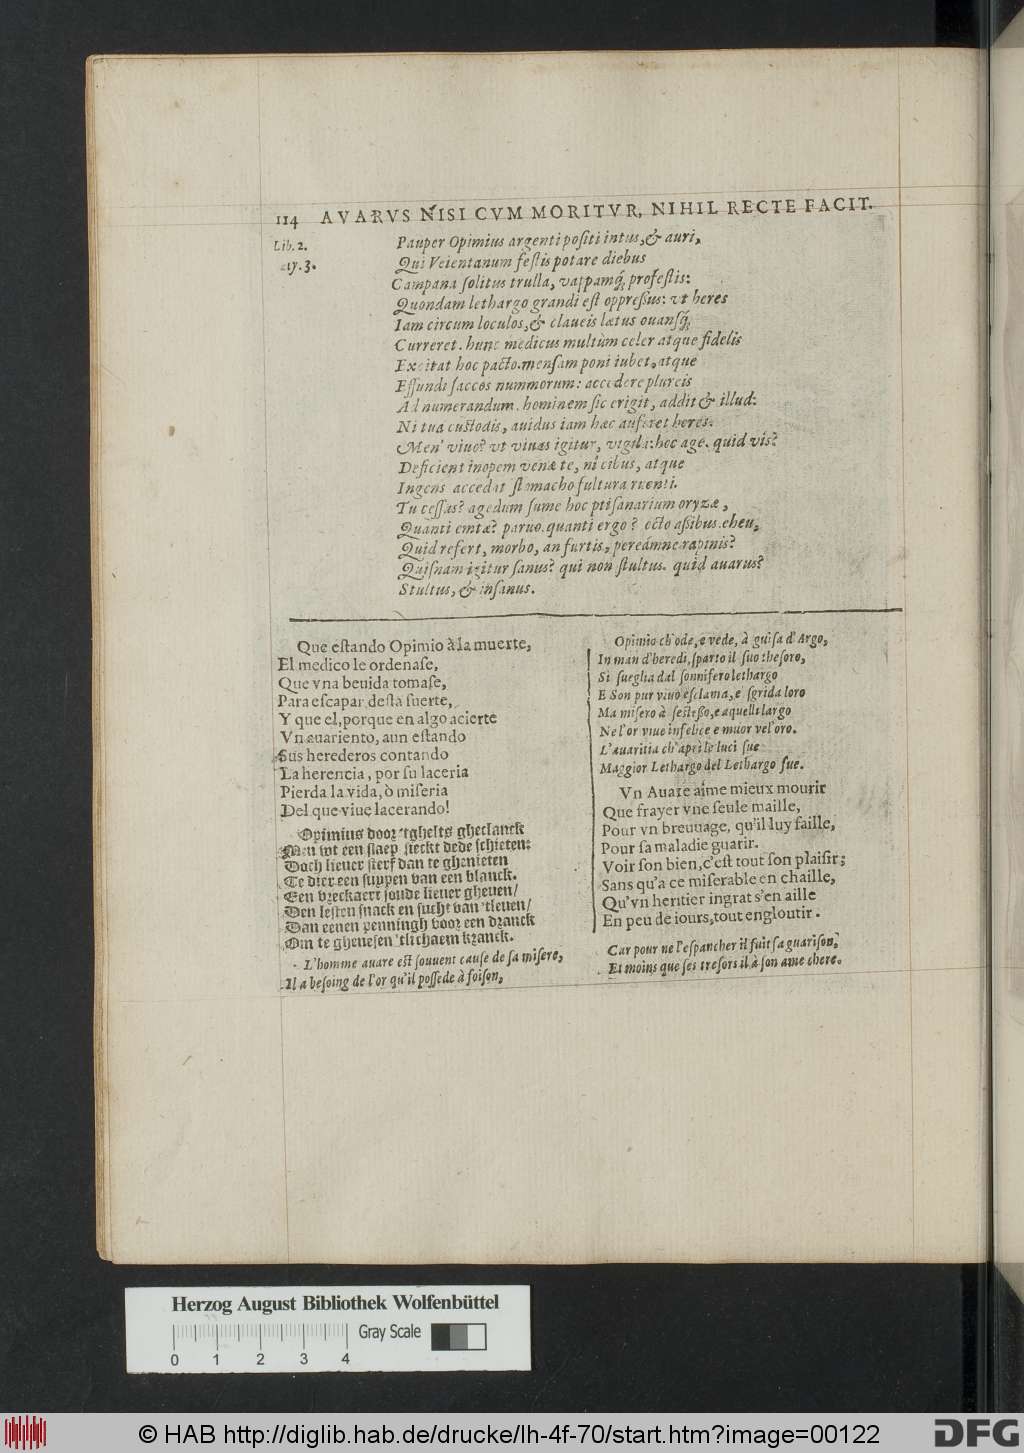 114 AVARVS NISI CVM MORITVR, NIHIL RECTE FACIT.
Lib. 2.
Pauper Opimius argenti poſiti intus, & auri,
ſty. 3.
Qui Veientanum feſtis potare diebus
Campana ſolitus trulla, vappamq́; profeſtis:
Quondam lethargo grandi eſt oppreſſus: vt heres
Iam circum loculos, & claueis lætus ouansq́;
Curreret. hunc medicus multùm celer atque fidelis
Excitat hoc pacto. menſam poni iubet, atque
Effundi ſaccos nummorum: accedere plureis
Ad numerandum. hominem ſic erigit, addit & illud:
Ni tua cuſtodis, auidus iam hæc auferet heres.
Men' viuo? vt viuas igitur, vigila: hoc age. quid vis?
Deficient inopem venæ te, ni cibus, atque
Ingens accedat ſtomacho fultura ruenti.
Tu ceſſas? agedum ſume hoc ptiſanarium oryzæ,
Quanti emtæ? paruo. quanti ergo? octo aſſibus. eheu,
Quid refert, morbo, an furtis, pereámne rapinis?
Quiſnam igitur ſanus? qui non ſtultus. quid auarus?
Stultus, & inſanus.
Que eſtando Opimio à la muerte,
El medico le ordenaſe,
Que vna beuida tomaſe,
Para eſcapar deſta ſuerte,
Y que el, porque en algo acierte
Vn auariento, aun eſtando
Sus herederos contando
La herencia, por ſu laceria
Pierda la vida, ò miſeria
Del que viue lacerando!
Opimius door 'tghelts gheclanck
Men wt een ſlaep ſieckt dede ſchieten:
Doch lieuer ſterf dan te ghenieten
Te dier een ſuppen van een blanck.
Een vreckaert ſoude lieuer gheuen/
Den leſten ſnack en ſucht van 'tleuen/
Dan eenen penningh voor een dranck
Om te gheneſen 'tlichaem kranck.
L'homme auare eſt ſouuent cauſe de ſa miſere,
Il a beſoing de l'or qu'il poſſede à foiſon,
Opimio ch'ode, e vede, à guiſa d'Argo,
In man d'heredi, ſparto il ſuo theſoro,
Si ſueglia dal ſonnifero lethargo
E Son pur viuo eſclama, e ſgrida loro
Ma miſero à ſe ſteſſo, e a quelli largo
Ne l'or viue infelice e muor vel'oro.
L'auaritia ch'apri le luci ſue
Maggior Lethargo del Lethargo fue.
Vn Auare aime mieux mourir
Que frayer vne ſeule maille,
Pour vn breuuage, qu'il luy faille,
Pour ſa maladie guarir.
Voir ſon bien, c'eſt tout ſon plaiſir;
Sans qu'a ce miſerable en chaille,
Qu'vn heritier ingrat s'en aille
En peu de iours, tout engloutir.
Car pour ne l'eſpancher il fuit ſa guariſon,
Et moins que ſes treſors il à ſon ame chere.
Herzog August Bibliothek Wolfenbüttel
Gray Scale
0 1 2 3 4
© HAB http://diglib.hab.de/drucke/lh-4f-70/start.htm?image=00122
DFG